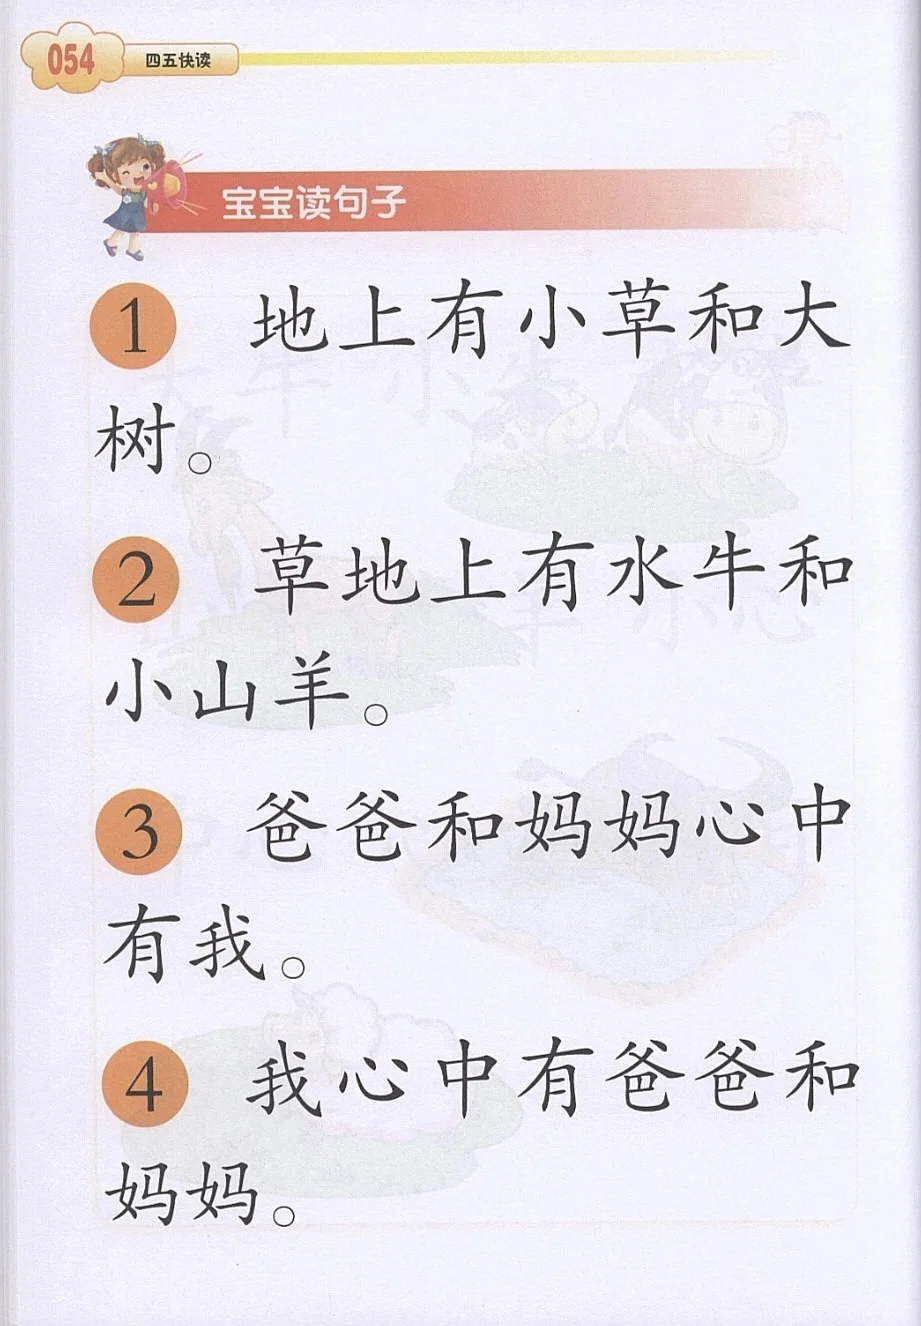 054
四五快读
宝宝读句子
1 地上有小草和大
树。
2 草地上有水牛和
小山羊。
3 爸爸和妈妈心中
有我。
4 我心中有爸爸和
妈妈。